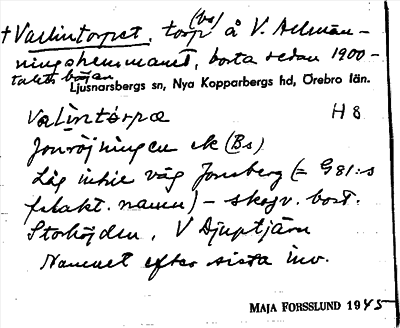 † Vallintorpet, torp (bs) å V. Allmän-
ningshemmanet, borta sedan 1900-
talets början
Ljusnarsbergs sn, Nya Kopparbergs hd, Örebro län.
Valintórpə H 8
Jonröjningen ek (Bs)
Låg intill väg Jonsberg (= G81:s
frakt. namn) – skogv. bost.
Storhöjden, V Djuptjärn
Namnet efter sista inv.
MAJA FORSSLUND 1945